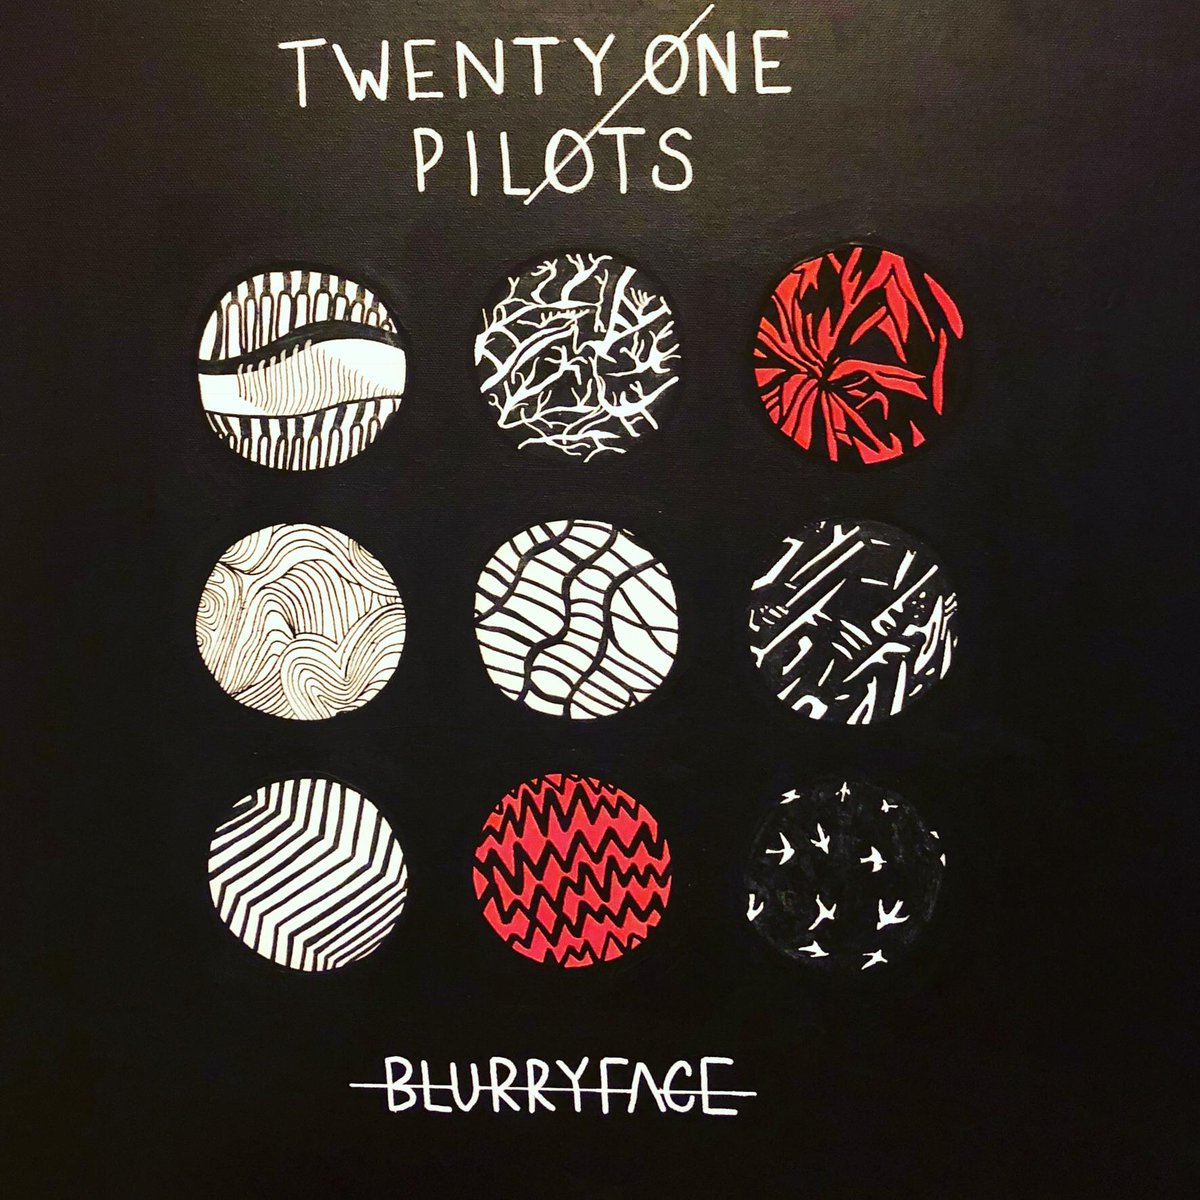 TWENTY ØNE
PILØTS
BLURRYFACE